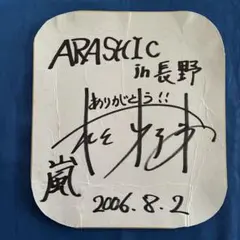 ARASHIC
in 長野
ありがとう!!
嵐
2006.8.2